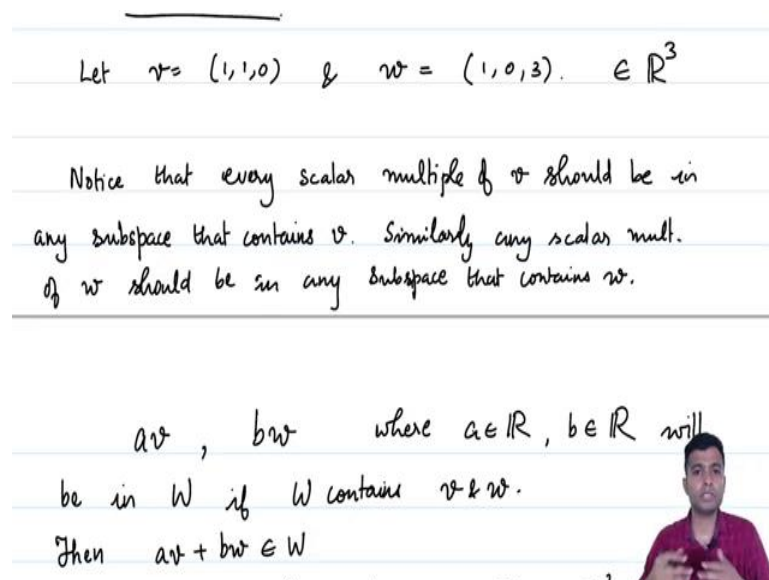 Let v = (1,1,0) & w = (1,0,3). ∈ ℝ³
Notice that every scalar multiple of v should be in
any subspace that contains v. Similarly any scalar mult.
of w should be in any subspace that contains w.
av , bw where a ∈ ℝ, b ∈ ℝ will
be in W if W contains v & w.
Then av + bw ∈ W